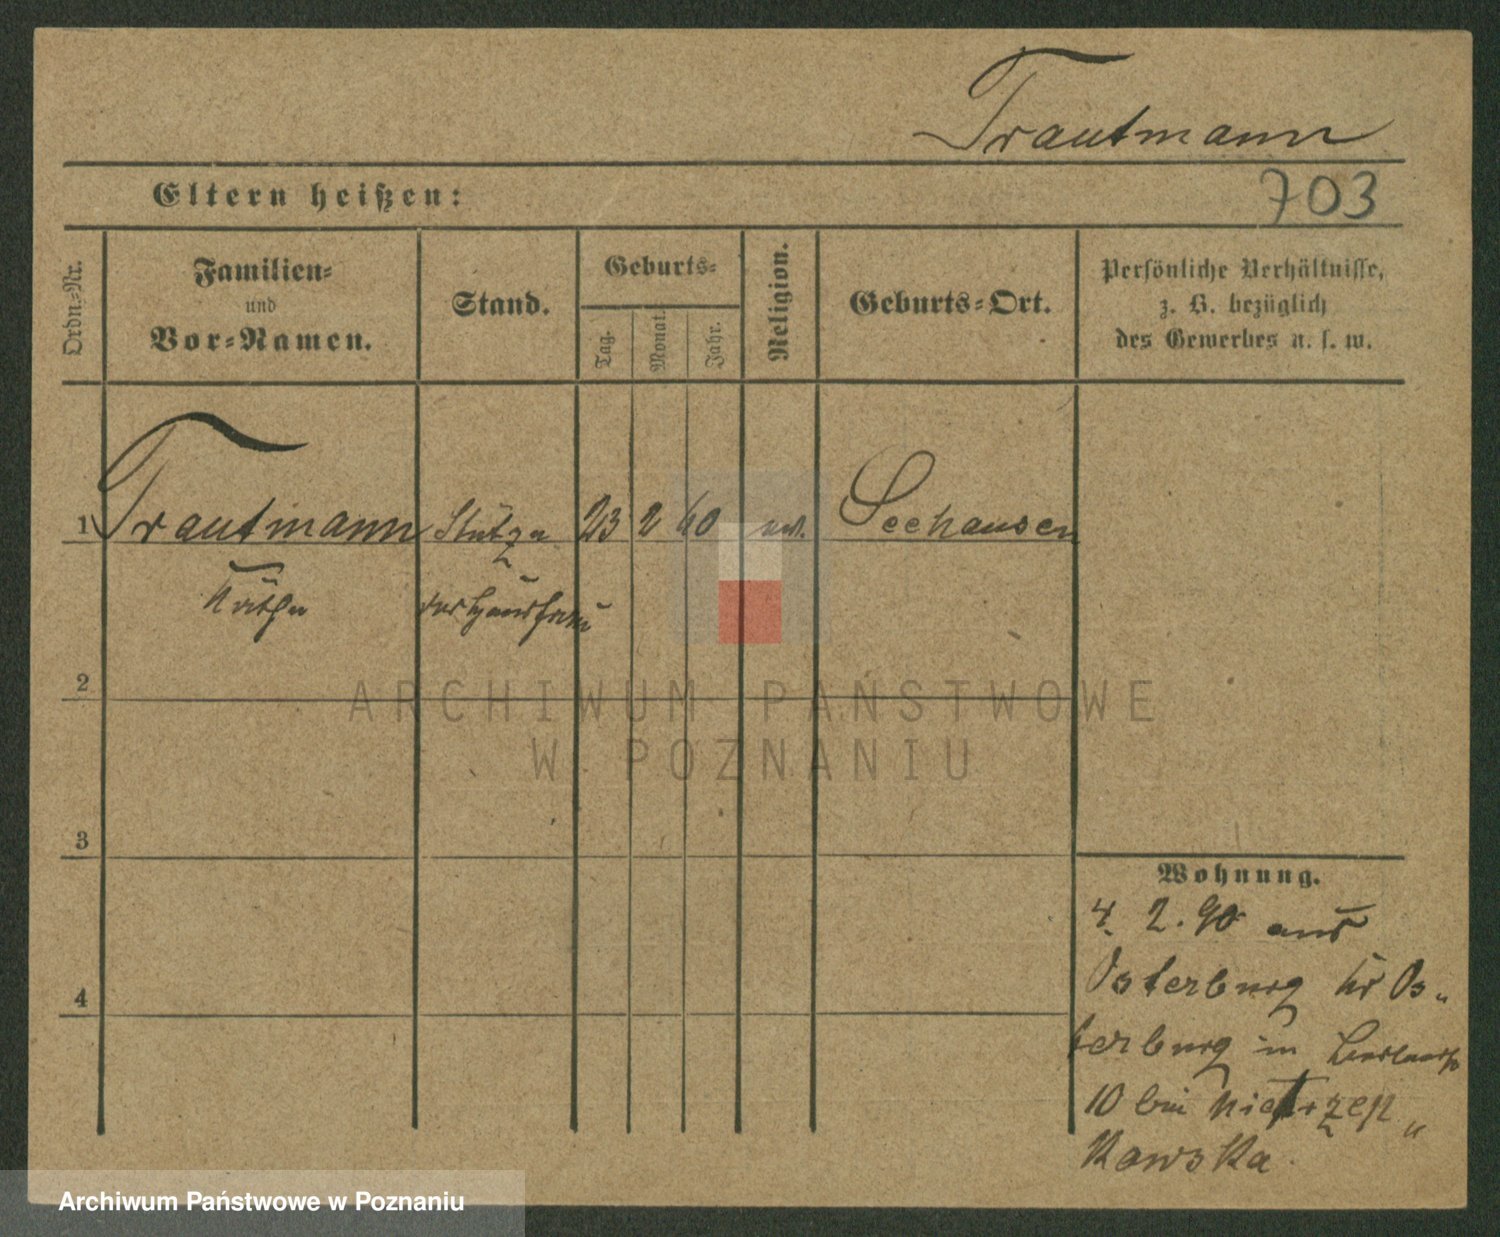 Trautmann
Eltern heißen:
703
Ordn.-Nr.
Familien-
und
Vor-Namen.
Stand.
Geburts-
Tag.
Monat.
Jahr.
Religion.
Geburts-Ort.
Persönliche Verhältnisse,
z. B. bezüglich
des Gewerbes u. s. w.
1 Trautmann Stütze 23 2 60 ev. Seehausen
Käthe der Hausfrau
2
3
4
Wohnung.
4. 2. 90 aus
Osterburg Kr Os„
terburg in
10 bei
kowska
ARCHIWUM PAŃSTWOWE
W POZNANIU
Archiwum Państwowe w Poznaniu